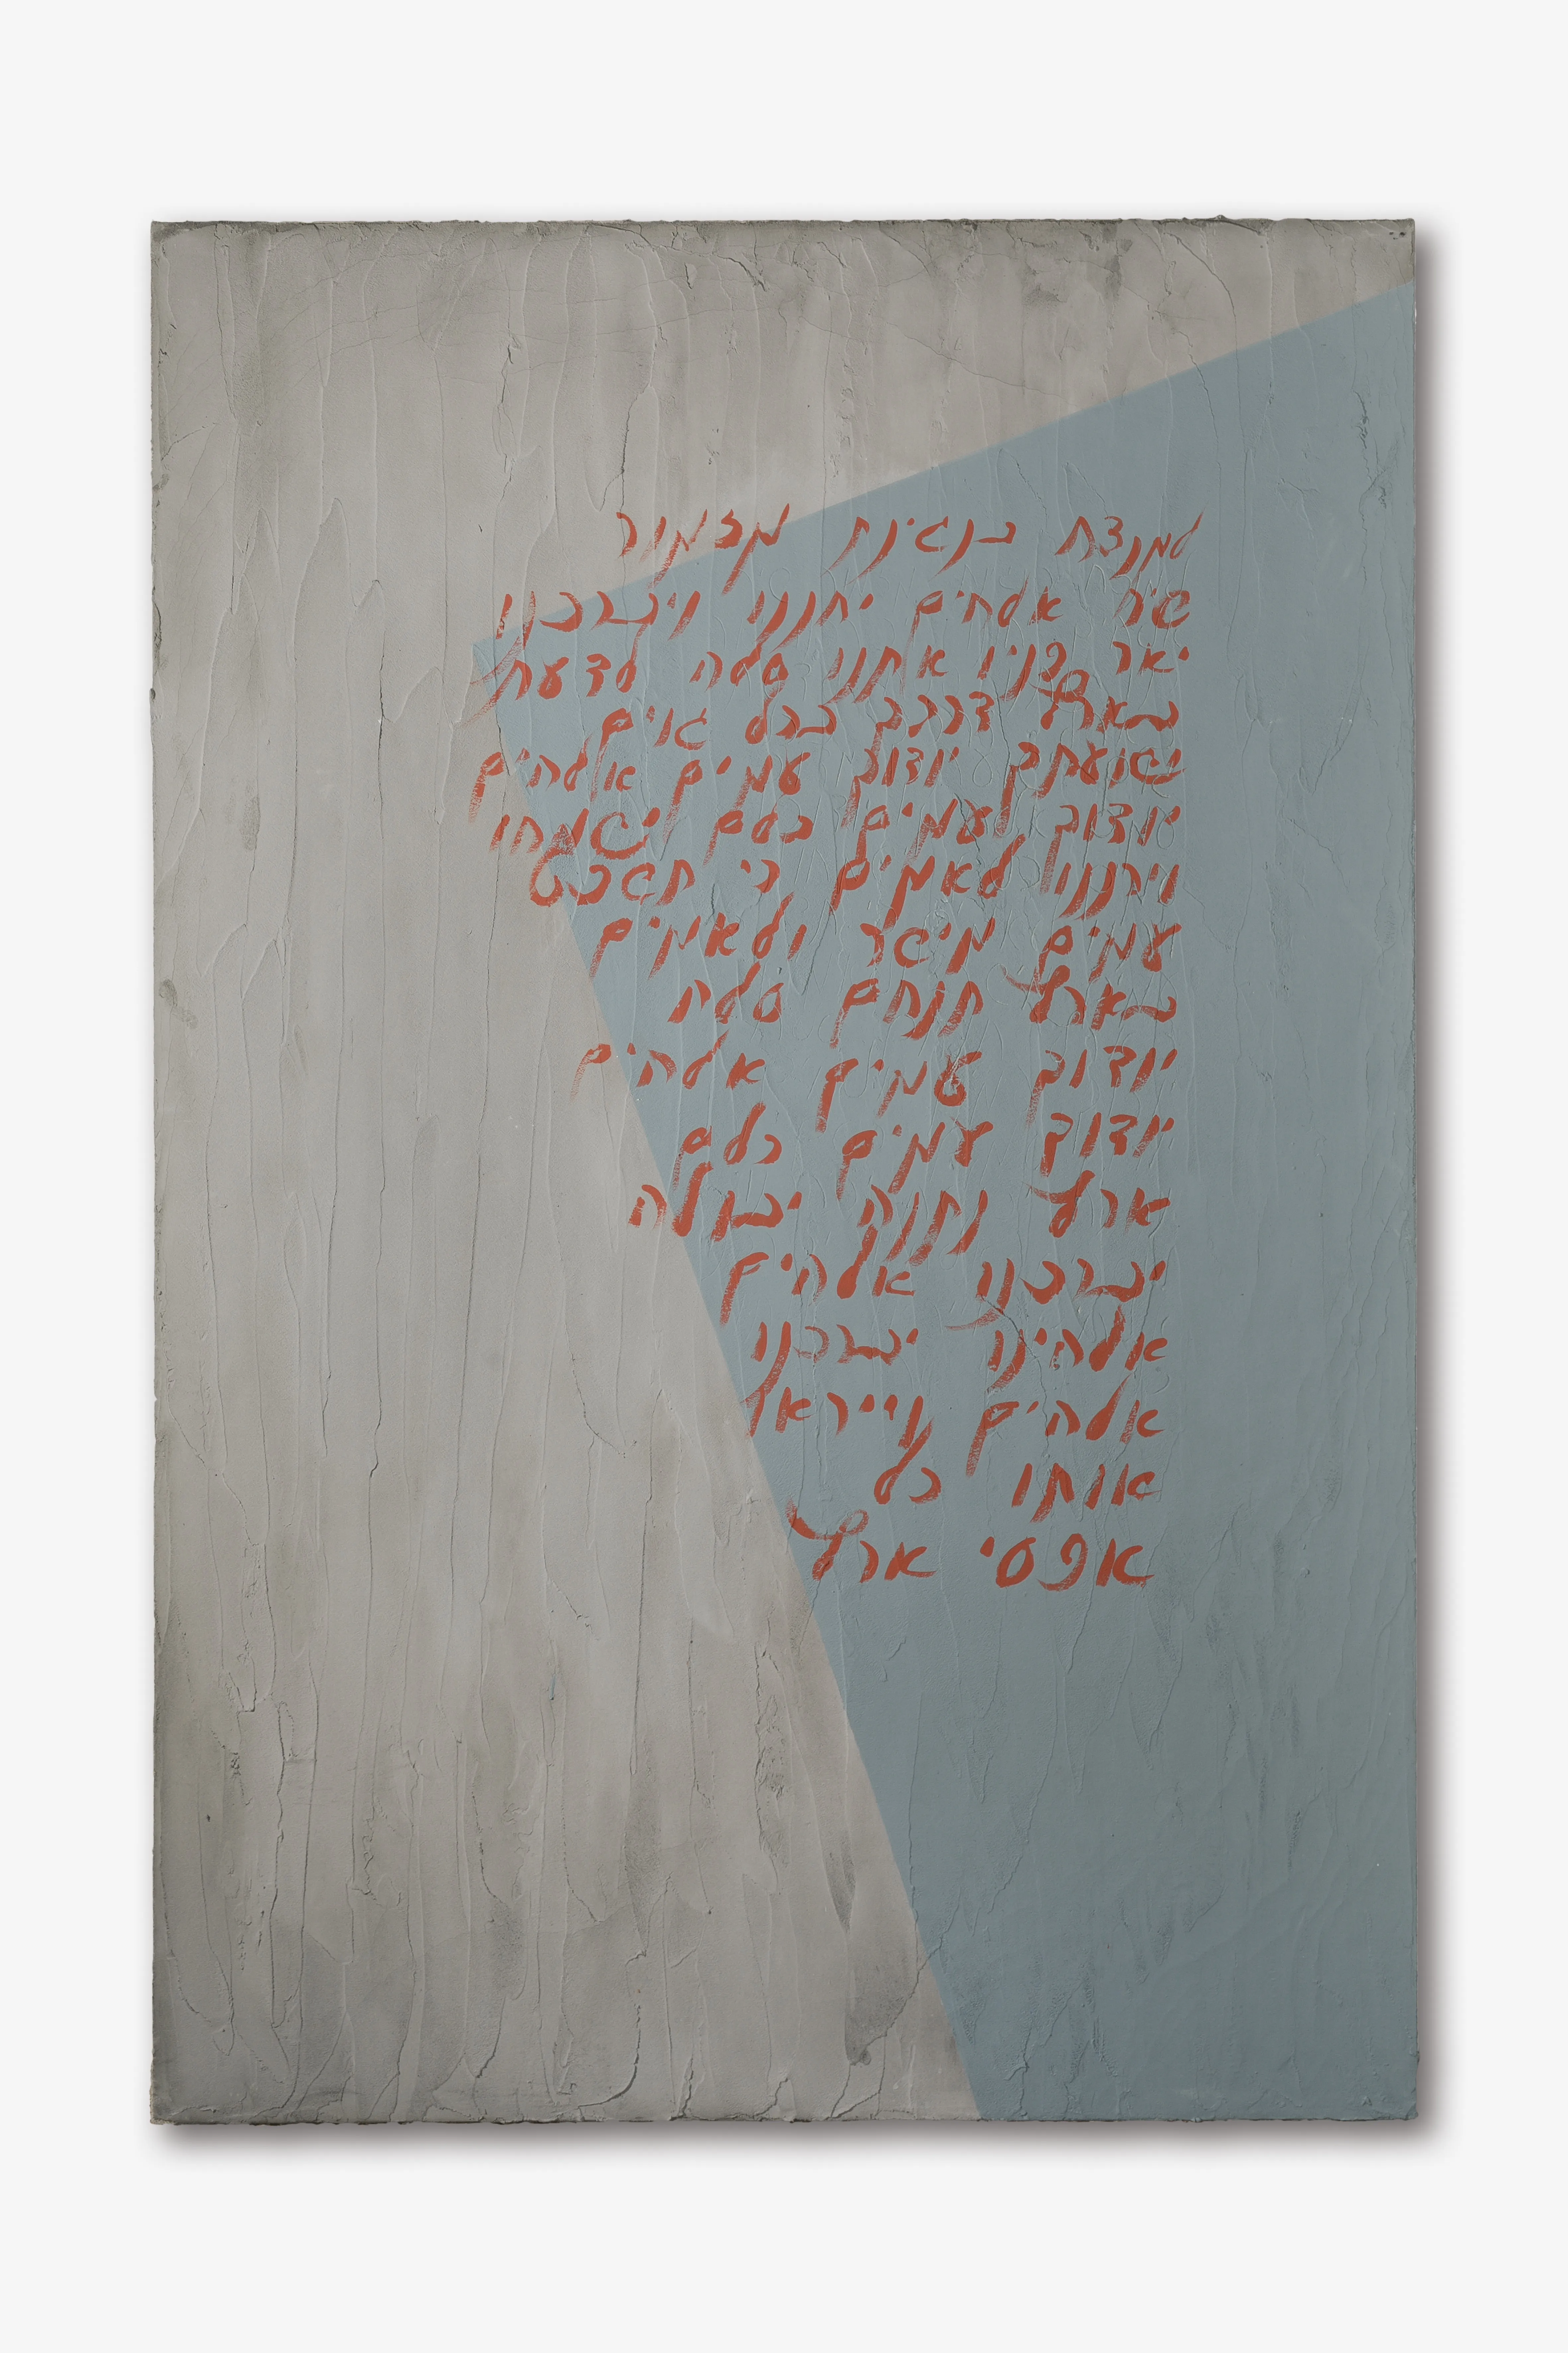 למנצח בנגינת מזמור
שיר אלהים יחננו ויברכנו
יאר פניו אתנו סלה לדעת
בארץ דרכך בכל גוים
ישועתך יודוך עמים אלהים
יודוך עמים כלם ישמחו
וירננו לאמים כי תשפט
עמים מישר ולאמים
בארץ תנחם סלה
יודוך עמים אלהים
יודוך עמים כלם
ארץ נתנה יבולה
יברכנו אלהים
אלהינו יברכנו
אלהים וייראו
אותו כל
אפסי ארץ